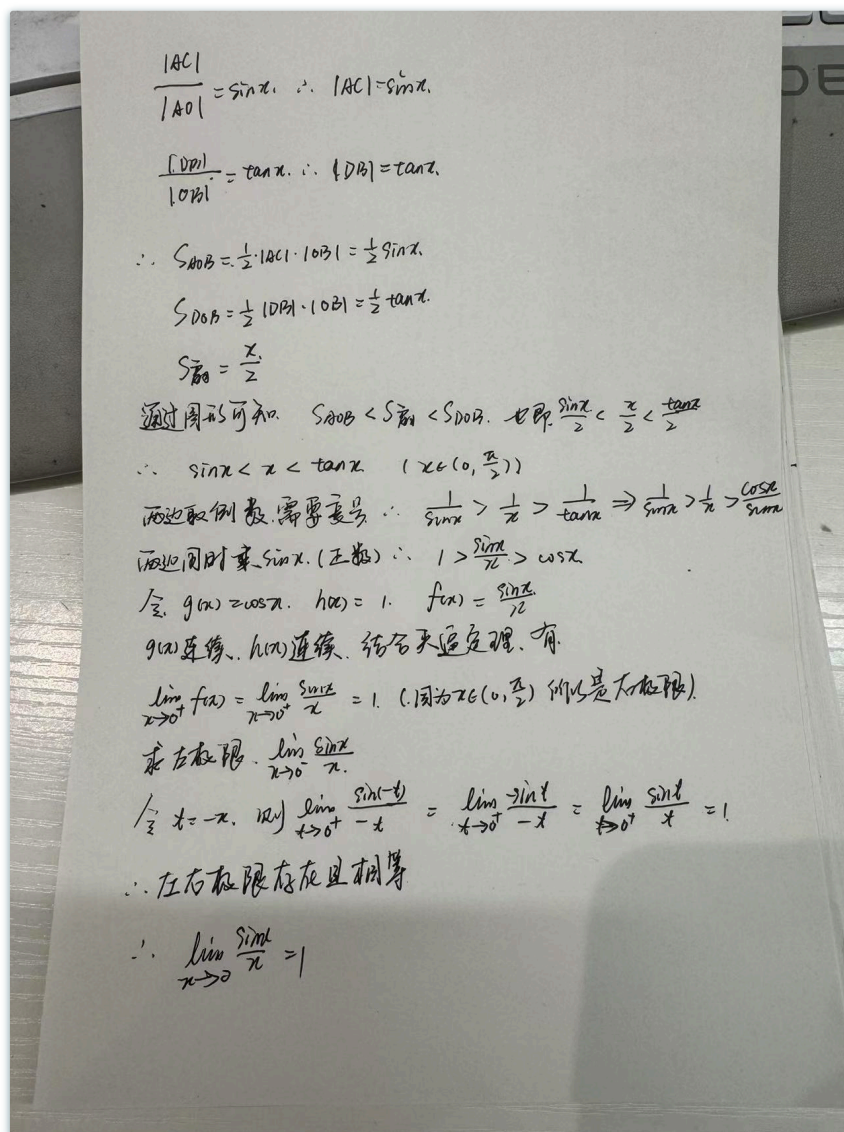 |AC|/|AO| = sinx. ∴ |AC|=sinx.
|DB|/|OB| = tanx. ∴ |DB|=tanx.
∴ S_{AOB}=1/2·|AC|·|OB|=1/2 sinx.
S_{DOB}=1/2|DB|·|OB|=1/2 tanx.
S_扇=x/2
通过图形可知. S_{AOB}<S_扇<S_{DOB}. 也即 sinx/2 < x/2 < tanx/2
∴ sinx < x < tanx (x∈(0, π/2))
两边取倒数,需要变号 ∴ 1/sinx > 1/x > 1/tanx ⇒ 1/sinx > 1/x > cosx/sinx
两边同时乘 sinx.(正数) ∴ 1 > sinx/x > cosx
令 g(x)=cosx. h(x)=1. f(x)=sinx/x
g(x)连续. h(x)连续. 结合夹逼定理. 有
lim_{x→0⁺} f(x) = lim_{x→0⁺} sinx/x = 1. (因为x∈(0, π/2) 所以是右极限).
求左极限. lim_{x→0⁻} sinx/x.
令 t=-x. 则 lim_{t→0⁺} sin(-t)/-t = lim_{t→0⁺} -sint/-t = lim_{t→0⁺} sint/t = 1.
∴ 左右极限存在且相等
∴ lim_{x→0} sinx/x = 1